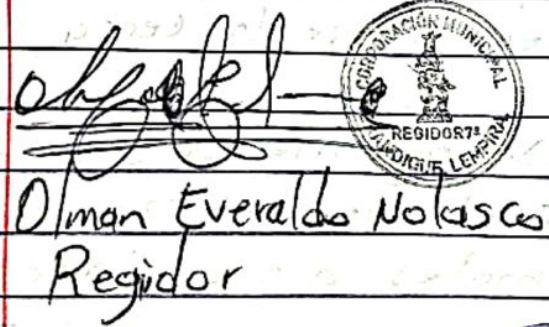 CORPORACIÓN MUNICIPAL
REGIDOR 7º
LEMPIRA
Olman Everaldo Nolasco
Regidor